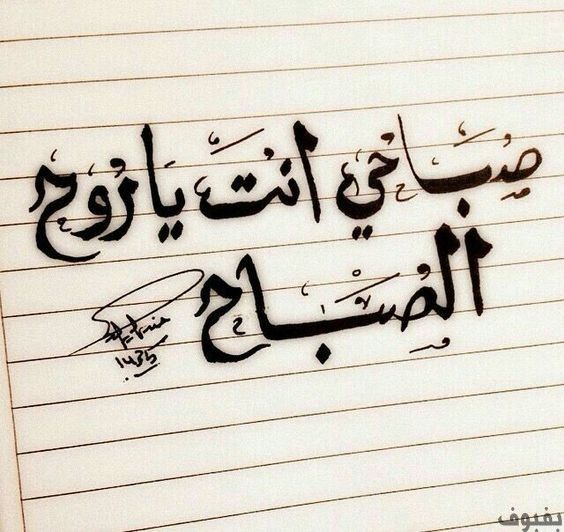 صباحي انت يا روح
الصباح
١٤٣٥
بفبوف